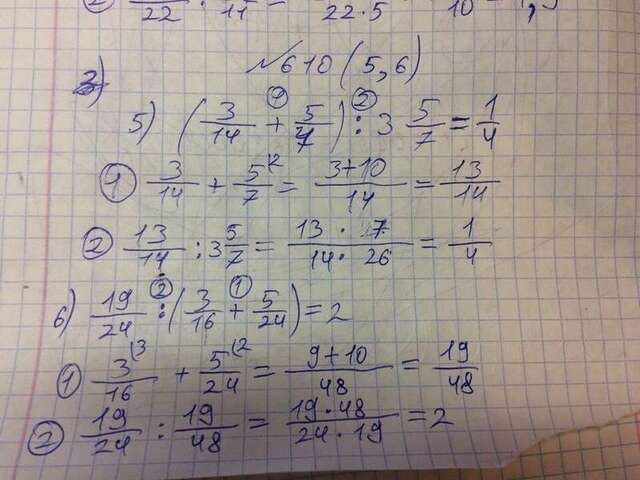 22 11 22·5 10
№610 (5,6)
3)
5) (3/14 + 5/7) : 3 5/7 = 1/4
① ②
① 3/14 + 5/7 (2 = 3+10/14 = 13/14
② 13/14 : 3 5/7 = 13 · 7/14 · 26 = 1/4
② ①
6) 19/24 : (3/16 + 5/24) = 2
① 3/16 (3 + 5/24 (2 = 9+10/48 = 19/48
② 19/24 : 19/48 = 19·48/24·19 = 2